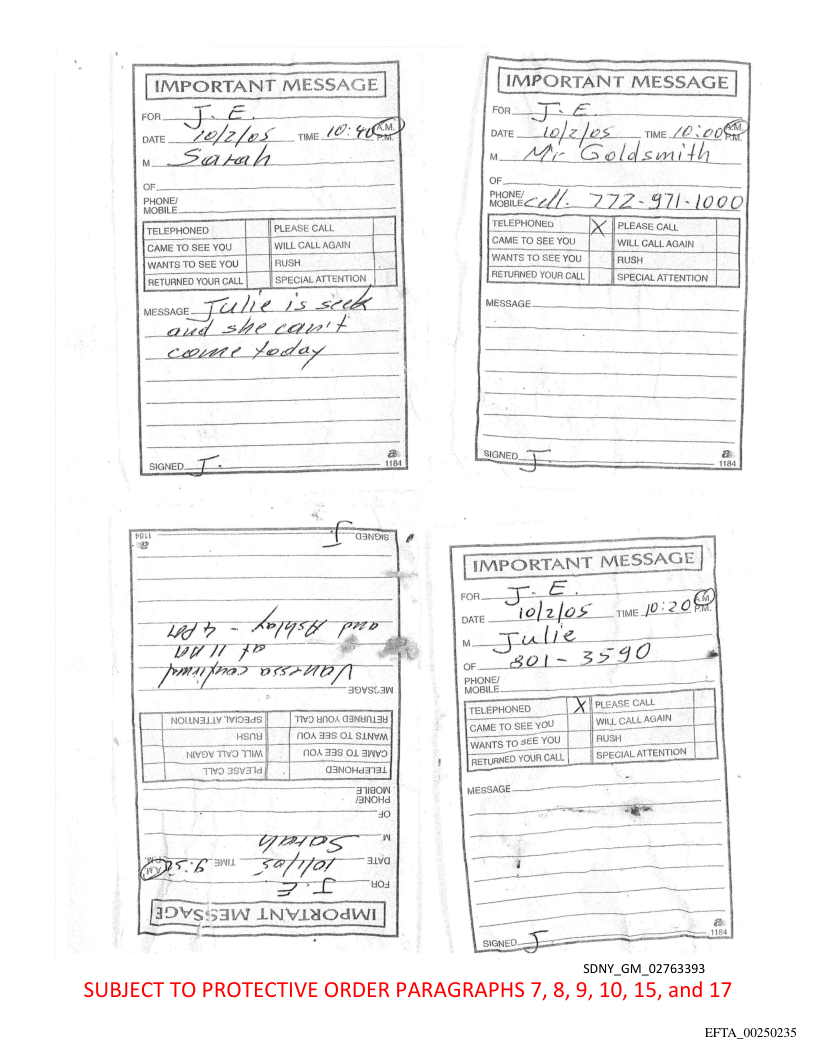 IMPORTANT MESSAGE
FOR J. E.
DATE 10/2/05 TIME 10:40 A.M. P.M.
M Sarah
OF
PHONE/
MOBILE
TELEPHONED PLEASE CALL
CAME TO SEE YOU WILL CALL AGAIN
WANTS TO SEE YOU RUSH
RETURNED YOUR CALL SPECIAL ATTENTION
MESSAGE Julie is seek
and she can't
come today
SIGNED J.
a
1184
IMPORTANT MESSAGE
FOR J. E
DATE 10/2/05 TIME 10:00 A.M. P.M.
M Mr Goldsmith
OF
PHONE/
MOBILE cell. 772-971-1000
TELEPHONED X PLEASE CALL
CAME TO SEE YOU WILL CALL AGAIN
WANTS TO SEE YOU RUSH
RETURNED YOUR CALL SPECIAL ATTENTION
MESSAGE
SIGNED J
a
1184
IMPORTANT MESSAGE
FOR J. E
DATE 10/1/05 TIME A.M. P.M.
M Sarah
OF
PHONE/
MOBILE
TELEPHONED PLEASE CALL
CAME TO SEE YOU WILL CALL AGAIN
WANTS TO SEE YOU RUSH
RETURNED YOUR CALL SPECIAL ATTENTION
MESSAGE
Vanessa confirmed
at 11 AM
and Ashley - 4 PM
SIGNED J.
a
1184
IMPORTANT MESSAGE
FOR J. E.
DATE 10/2/05 TIME 10:20 A.M. P.M.
M Julie
OF 801-3590
PHONE/
MOBILE
TELEPHONED X PLEASE CALL
CAME TO SEE YOU WILL CALL AGAIN
WANTS TO SEE YOU RUSH
RETURNED YOUR CALL SPECIAL ATTENTION
MESSAGE
SIGNED J
a
1184
SDNY_GM_02763393
SUBJECT TO PROTECTIVE ORDER PARAGRAPHS 7, 8, 9, 10, 15, and 17
EFTA_00250235